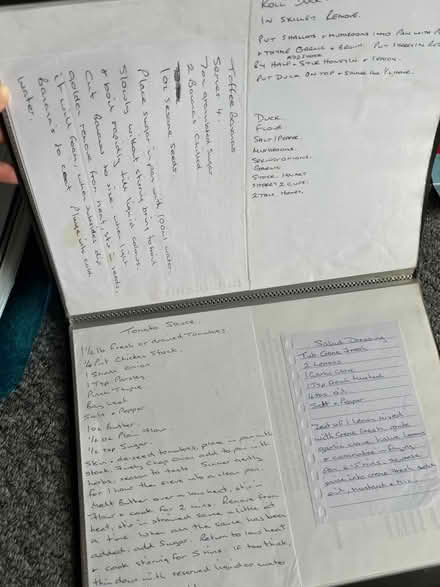 ROLL DUCK
IN SKILLET REMOVE.
PUT SHALLOTS + MUSHROOMS INTO PAN WITH
+ THYME GARLIC + BROWN. PUT SHERRY IN
ADD STOCK
BY HALF + STIR HONEY IN + SEASON.
PUT DUCK ON TOP +
DUCK
FLOUR
SALT / PEPPER
MUSHROOMS
SPRING ONIONS
GARLIC
STOCK
SHERRY 2 CUPS
2 TBLS. HONEY.
Toffee Bananas
Serves 4.
7oz granulated sugar
2 Bananas
1oz sesame seeds.
Place sugar in pan with 100ml water.
Slowly without stirring bring to boil
+ boil rapidly till liquid colours.
Cut Bananas to size when light
golden remove from heat, stir in seeds,
it will foam, when subsides dip
Bananas to coat. Plunge into cold
water.
Tomato Sauce.
1½ lb Fresh or drained Tomatoes
¼ Pint Chicken Stock
1 Small onion
1 Tsp Parsley
Pinch Thyme
Bay leaf
Salt + Pepper
1oz Butter
½ oz Plain Flour
½ tsp Sugar
Skin + de-seed tomatoes, place in pan with
stock. Finely Chop onion add to pan with
herbs, season to taste. Simmer gently
for 1 hour then sieve into a clean pan.
Melt Butter over a low heat, stir in
Flour + cook for 2 mins. Remove from
heat, stir in strained sauce a little at
a time. When all the sauce has been
added, add Sugar. Return to low heat
+ cook stirring for 5 mins. If too thick,
thin down with reserved liquid or water
Salad Dressing
Tub Creme Fresh
2 Lemons
1 Garlic Clove
1 Tsp French Mustard
4 tbs oil
Salt + Pepper
Zest of 1 Lemon mixed
with Creme Fresh, grate
garlic clove, halve lemons
+ caramelise in frying
pan 5 mins. squeeze
juice into creme fresh, salt
oil, mustard + mix.